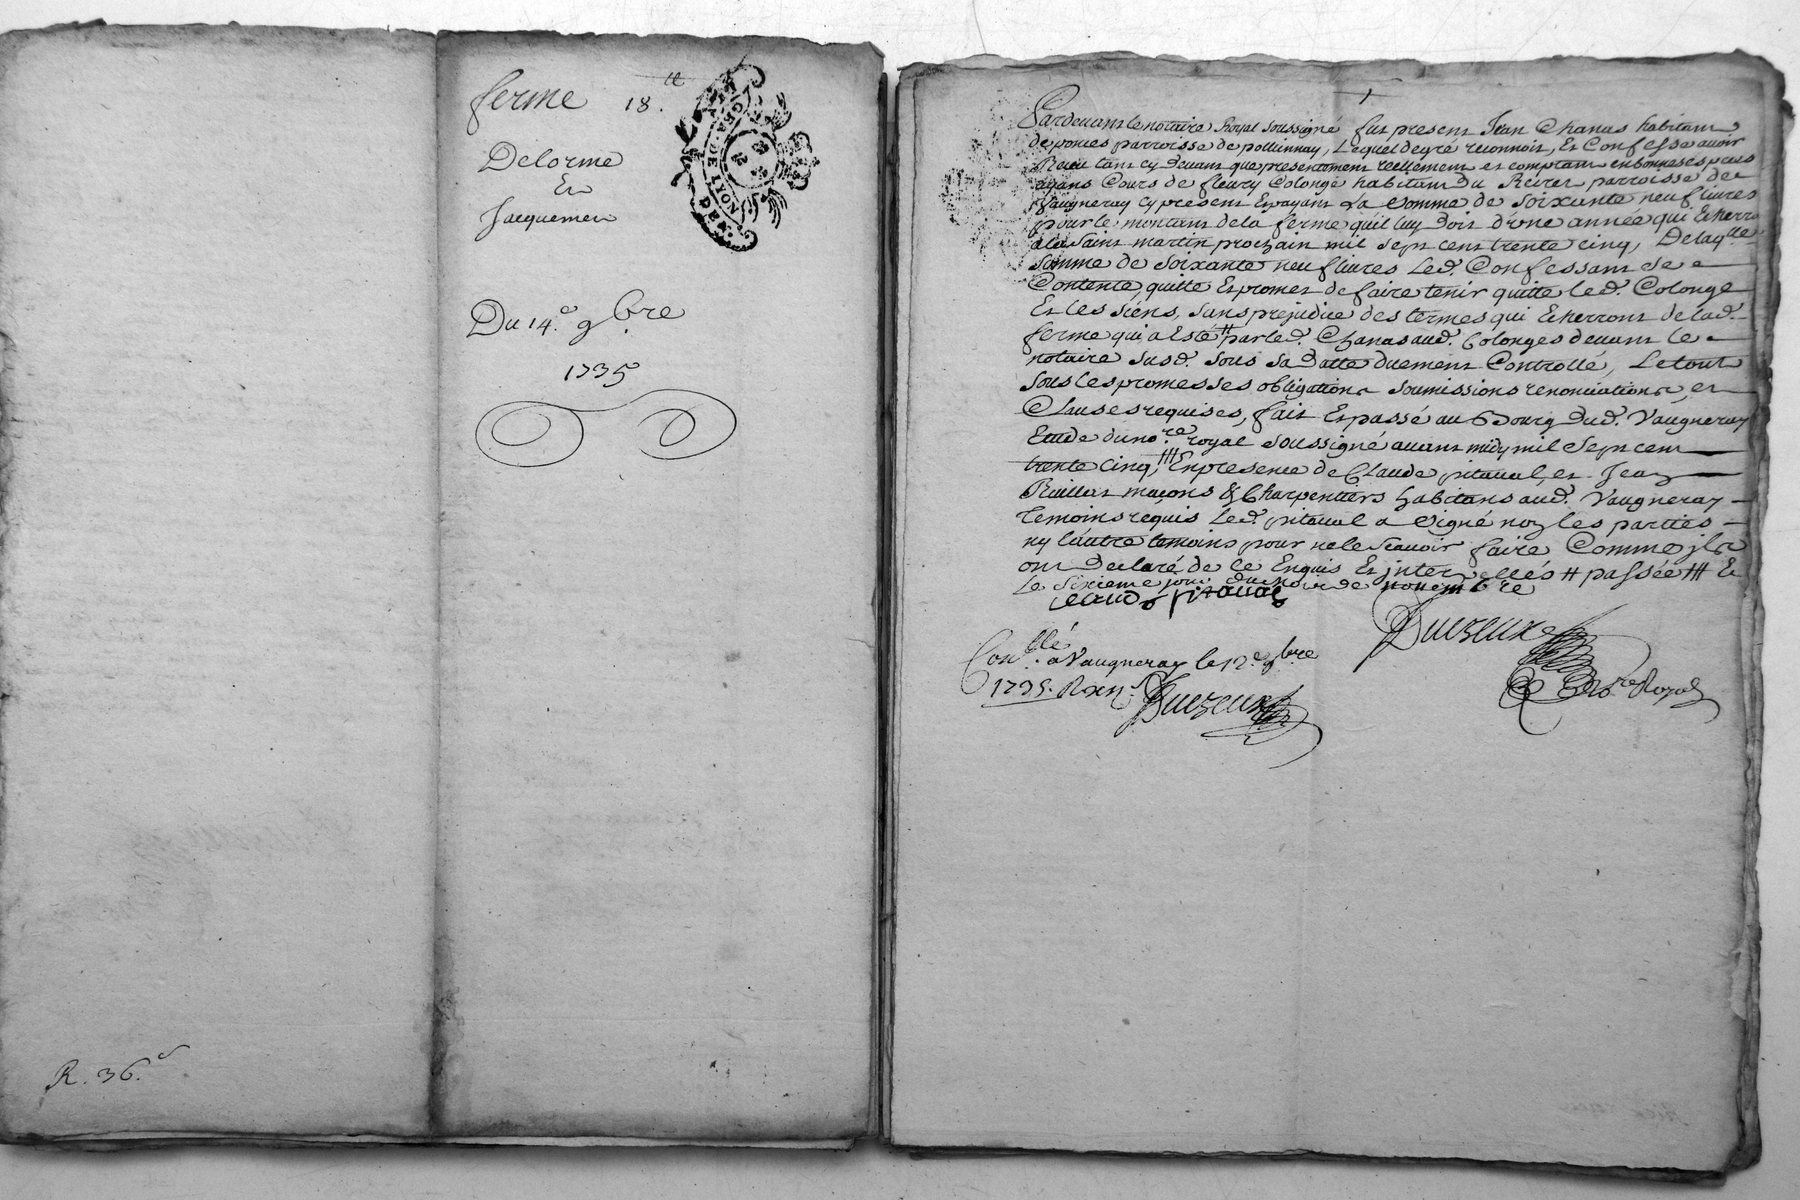 ferme 18.tt
Delorme
Et
Jacquemet
Du 14.e 9bre
1735
R. 36.s
GEN.DE LYON DE.M.
Pardevant le notaire Royal soussigné fut present Jean Chanas habitant
de ponies parroisse de pollinnay, Lequel de gré reconnoit, Et Confesse avoir
Receu tant cy devant que presentement reellement et comptant en bonnes especes
ayans Cours de fleury Colonge habitant du Recret parroisse de
Vaugneray cy present Et payant La somme de soixante neuf livres
pour le montant de la ferme qu'il luy doit d'une année qui Echerra
a la saint martin prochain mil sept cent trente cinq, De laq.lle
somme de soixante neuf livres Led. Confessant se
Contente, quitte Et promet de faire tenir quitte led. Colonge
Et les siens, sans prejudice des termes qui Echerront de lad.
ferme qui a Esté # par led. Chanas aud. Colonges devant le
notaire susd. sous sa datte duement Controllé, Le tout
sous les promesses obligations soumissions renonciations, et
Clauses requises, fait Et passé au Bourg dud. Vaugneray
Etude du no.re royal soussigné avant midy mil sept cent
trente cinq, ### En presence de Claude pitaval, et Jean
Ruillat maçons & Charpentiers habitans aud. Vaugneray
Temoins requis Led. pitaval a signé non les parties
ny l'autre temoins pour ne le scavoir faire Comme ils
ont Declaré de le Enquis Et interpellés # passée ### Et
le sixieme jour du mois de novembre
Claude pitaval
Duezeux
No.re Royal
Con.llé a Vaugneray le 12.e 9bre
1735. R. xii s.
Duezeux